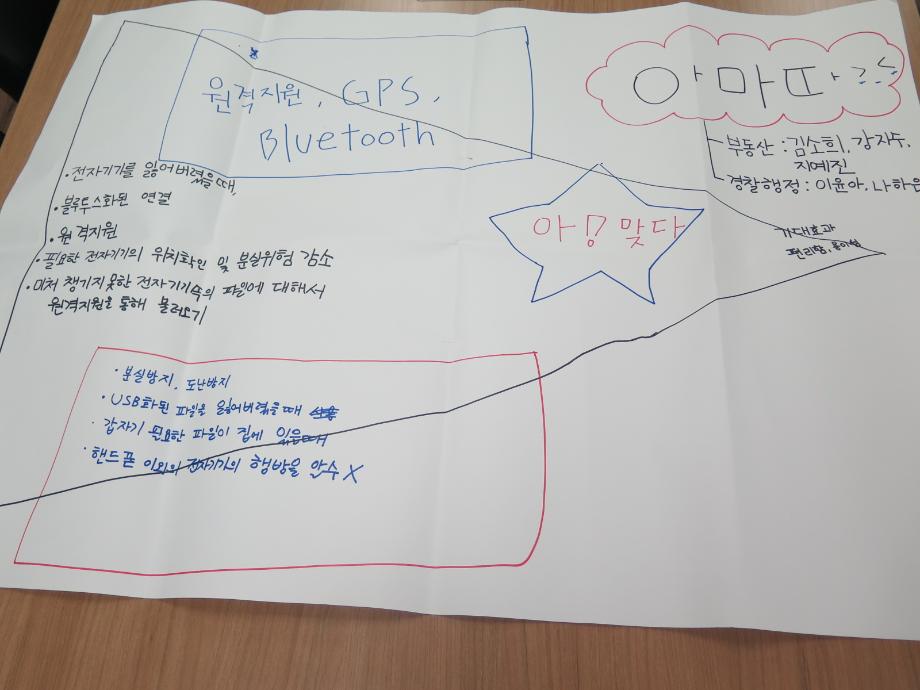 원격지원, GPS,
Bluetooth
아마따
부동산 : 김소희, 강지수,
지예진
경찰행정 : 이윤아, 나하은
· 전자기기를 잃어버렸을때,
· 블루투스화된 연결
· 원격지원
· 필요한 전자기기의 위치확인 및 분실위험 감소
· 미처 챙기지못한 전자기기속의 파일에 대해서
원격지원을 통해 불러오기
아! 맞다
기대효과
편리함, 용이성
· 분실방지, 도난방지
· USB화된 파일을 잃어버렸을때
· 갑자기 필요한 파일이 집에 있을때
· 핸드폰 이외의 전자기기의 행방을 알수 X